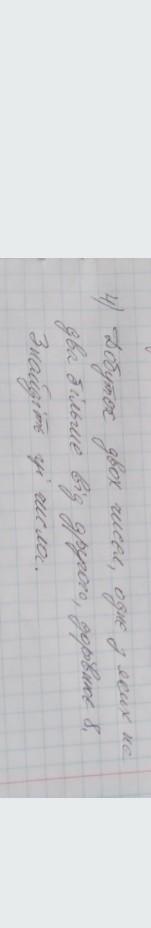 4) Добуток двох чисел, одне з яких на
два більше від другого, дорівнює 8.
Знайдіть ці числа.